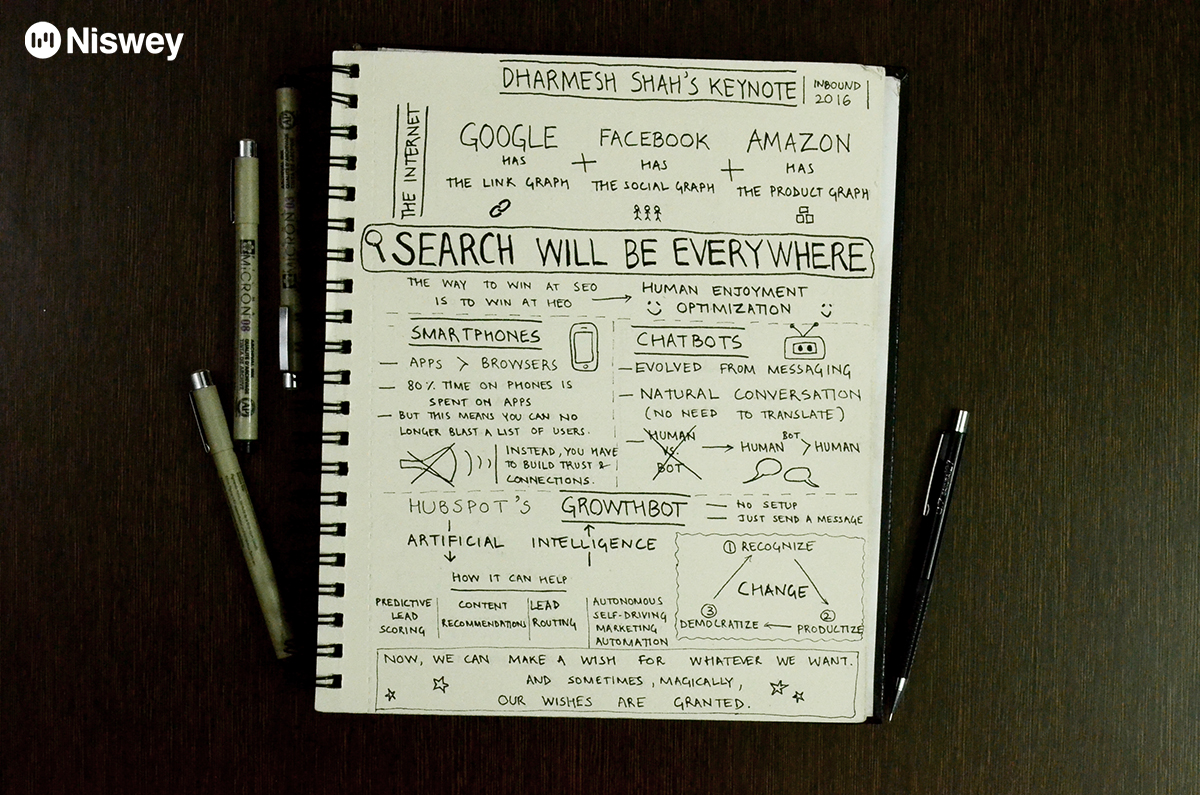 Niswey
DHARMESH SHAH'S KEYNOTE
INBOUND
2016
THE INTERNET
GOOGLE
HAS
THE LINK GRAPH
+
FACEBOOK
HAS
THE SOCIAL GRAPH
+
AMAZON
HAS
THE PRODUCT GRAPH
SEARCH WILL BE EVERYWHERE
THE WAY TO WIN AT SEO
IS TO WIN AT HEO
HUMAN ENJOYMENT
OPTIMIZATION
SMARTPHONES
— APPS > BROWSERS
— 80% TIME ON PHONES IS
SPENT ON APPS
— BUT THIS MEANS YOU CAN NO
LONGER BLAST A LIST OF USERS.
INSTEAD, YOU HAVE
TO BUILD TRUST &
CONNECTIONS.
CHATBOTS
— EVOLVED FROM MESSAGING
— NATURAL CONVERSATION
(NO NEED TO TRANSLATE)
— HUMAN
VS.
BOT
BOT
HUMAN > HUMAN
HUBSPOT'S GROWTHBOT
— NO SETUP
— JUST SEND A MESSAGE
ARTIFICIAL INTELLIGENCE
HOW IT CAN HELP
PREDICTIVE
LEAD
SCORING
CONTENT
RECOMMENDATIONS
LEAD
ROUTING
AUTONOMOUS
SELF-DRIVING
MARKETING
AUTOMATION
1 RECOGNIZE
CHANGE
3
DEMOCRATIZE
2
PRODUCTIZE
NOW, WE CAN MAKE A WISH FOR WHATEVER WE WANT.
AND SOMETIMES, MAGICALLY,
OUR WISHES ARE GRANTED.
MICRON 08
MICRON